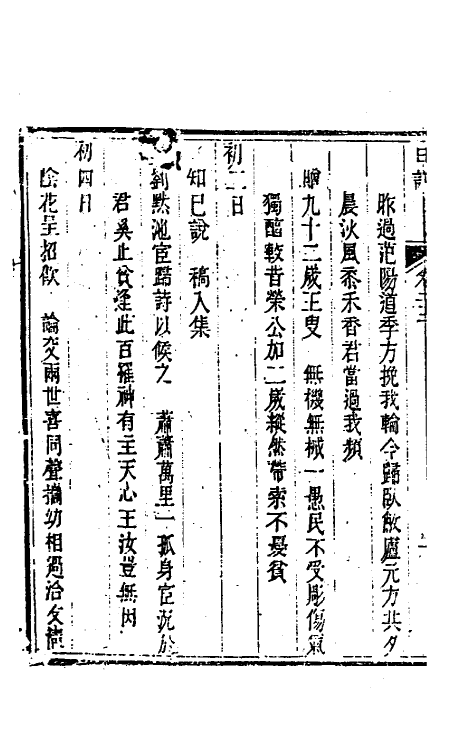 日譜 卷三十三
昨過范陽道季方挽我輪今歸臥敝廬元方共夕
晨淡風黍禾香君當過我頻
贈九十二歲王叟 無機無械一愚民不受彫傷氣
獨醇較昔榮公加二歲縱然帶索不憂貧
初二日
知已說 稿入集
劉黙池宦歸詩以候之 蕭蕭萬里一孤身宦況於
君吳止貧逢此百罹神有主天心王汝豈無因
初四日
花呈招飲 論交兩世喜同聲攜幼相過洽友情